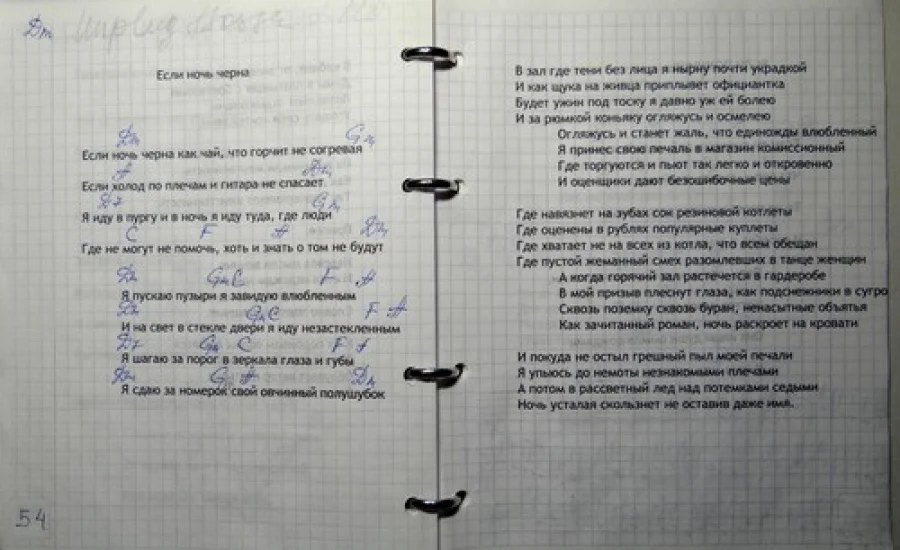 Dm
Если ночь черна
Dm Gm
Если ночь черна как чай, что горчит не согревая
A Dm
Если холод по плечам и гитара не спасает
D7 Gm
Я иду в пургу и в ночь я иду туда, где люди
C F A Dm
Где не могут не помочь, хоть и знать о том не будут
Dm Gm C F A
Я пускаю пузыри я завидую влюбленным
Dm Gm C F A
И на свет в стекле двери я иду незастекленным
D7 Gm C F A
Я шагаю за порог в зеркала глаза и губы
Dm G A Dm
Я сдаю за номерок свой овчинный полушубок
54
В зал где тени без лица я нырну почти украдкой
И как щука на живца приплывет официантка
Будет ужин под тоску я давно уж ей болею
И за рюмкой коньяку огляжусь и осмелею
Огляжусь и станет жаль, что единожды влюбленный
Я принес свою печаль в магазин комиссионный
Где торгуются и пьют так легко и откровенно
И оценщики дают безошибочные цены
Где навязнет на зубах сок резиновой котлеты
Где оценены в рублях популярные куплеты
Где хватает не на всех из котла, что всем обещан
Где пустой жеманный смех разомлевших в танце женщин
А когда горячий зал растечется в гардеробе
В мой призыв плеснут глаза, как подснежники в сугро
Сквозь поземку сквозь буран, ненасытные объятья
Как зачитанный роман, ночь раскроет на кровати
И покуда не остыл грешный пыл моей печали
Я упьюсь до немоты незнакомыми плечами
А потом в рассветный лед над потемками седыми
Ночь усталая скользнет не оставив даже имя.